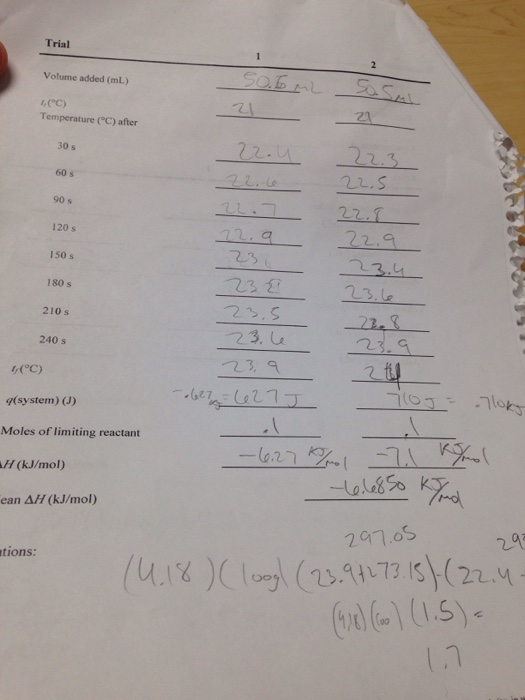 Trial
1 2
Volume added (mL) 50.5 mL 50.5mL
tᵢ(°C) 21 21
Temperature (°C) after
30 s 22.4 22.3
60 s 22.6 22.5
90 s 22.7 22.8
120 s 22.9 22.9
150 s 23 23.4
180 s 23.2 23.6
210 s 23.5 23.8
240 s 23.6 23.9
(°C) 23.9 24
q(system) (J) -.627 kJ = 627 J 710 J = .710 KJ
Moles of limiting reactant .1 .1
H (kJ/mol) -6.27 KJ/mol -7.1 KJ/mol
ean ΔH (kJ/mol) -6.6850 KJ/mol
297.05 29
tions:
(4.18)(100g)(23.9+273.15)-(22.4-
(4.18)(100)(1.5)=
1.7